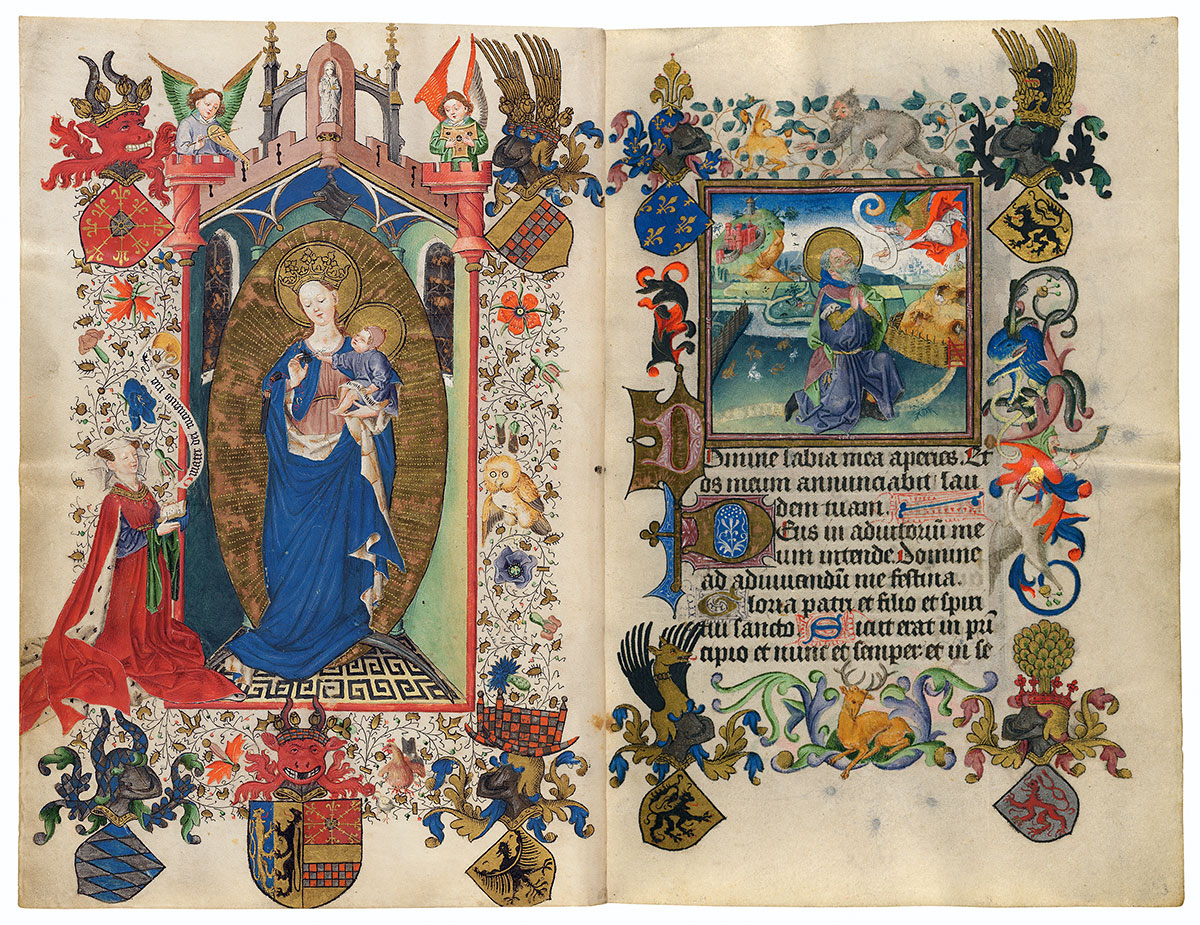 O mater dei memento mei
2
Domine labia mea aperies. Et
os meum annunciabit lau
dem tuam.
Deus in adiutoriū me
um intende. Domine
ad adiuvandū me festina.
Gloria patri et filio et spiri
tui sancto Sicut erat in prī
cipio et nunc et semper et in se